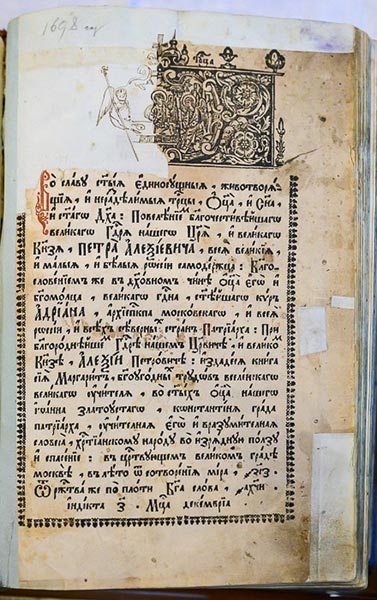 1698 год
Тр҃ца
Во славу ст҃ыѧ єдиносущныѧ, животворѧ-
щїѧ, и нераздѣлимыѧ трⷪ҇цы, Ѻ҆ц҃а, и Сн҃а
и ст҃агѡ Дх҃а: Повелѣнїемъ благочестивѣйшагѡ
великагѡ Гдⷭ҇рѧ нашегѡ Цр҃ѧ, и великагѡ
Кн҃зѧ, ПЕТРА АЛЕѮІЕВИЧА, всеѧ великїѧ,
и малыѧ, и бѣлыѧ рѡссїи самодержца: Блго-
словенїемъ же въ дх҃овномъ чинѣ Ѻ҆ц҃а Єгѡ и
бг҃омолца, великагѡ гдⷭ҇на, ст҃ѣйшагѡ кѵръ
АДРІАНА, архїепⷭ҇кпа московскагѡ, и всеѧ
рѡссїи, и всѣхъ сѣверныхъ странъ Патрїарха: При
благороднѣйшемъ Гдⷭ҇рѣ нашемъ Цр҃вичѣ, и великомъ
Кн҃зѣ, АЛЕѮІИ Петровичѣ: издадесѧ книга
сїѧ Маргаритъ, бг҃оугодныхъ трудѡвъ вселенскагѡ
великагѡ учителѧ, во ст҃ыхъ Ѻ҆ц҃а нашегѡ
Іѡанна златоустагѡ, константинѧ града
патрїарха, учителнаѧ Єгѡ и вразумителнаѧ
словеса, хрⷭ҇тїанскому народу во изрѧдную ползу
и спасенїе: въ црⷭ҇твующемъ великомъ градѣ
москвѣ, въ лѣто ѿ сотворенїѧ мїра, ҂зс҃з.
Ѿ рожⷭ҇тва же по плоти Бг҃а слова, ҂ахч҃и.
індікта з҃. Мцⷭ҇а декемврїа